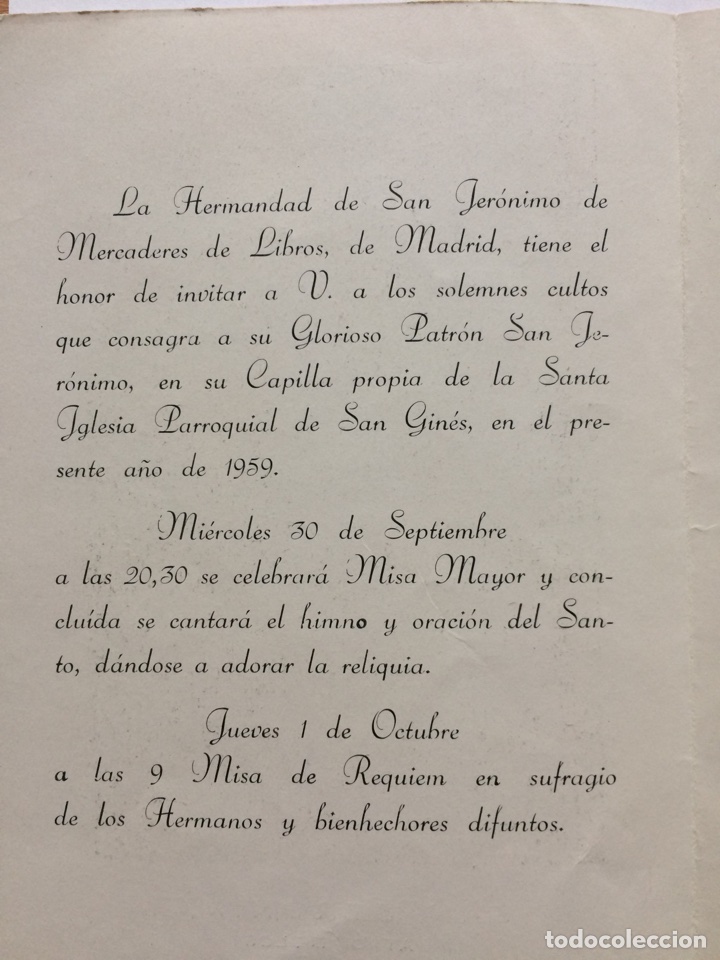 La Hermandad de San Jerónimo de
Mercaderes de Libros, de Madrid, tiene el
honor de invitar a V. a los solemnes cultos
que consagra a su Glorioso Patrón San Je-
rónimo, en su Capilla propia de la Santa
Iglesia Parroquial de San Ginés, en el pre-
sente año de 1959.
Miércoles 30 de Septiembre
a las 20,30 se celebrará Misa Mayor y con-
cluída se cantará el himno y oración del San-
to, dándose a adorar la reliquia.
Jueves 1 de Octubre
a las 9 Misa de Requiem en sufragio
de los Hermanos y bienhechores difuntos.
todocoleccion